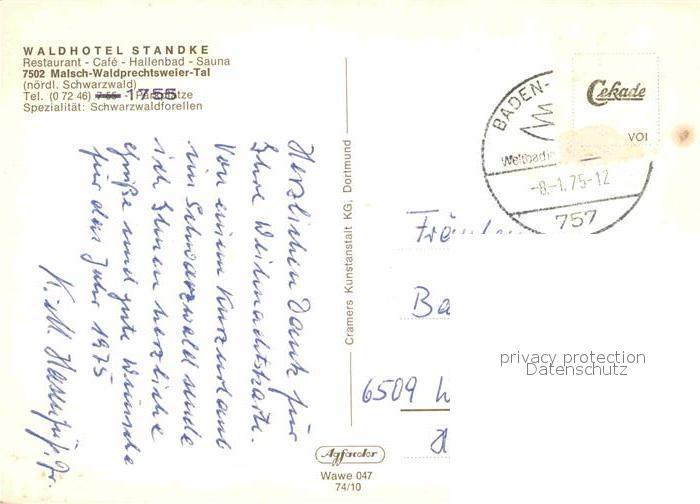 WALDHOTEL STANDKE
Restaurant - Café - Hallenbad - Sauna
7502 Malsch-Waldprechtsweier-Tal
(nördl. Schwarzwald)
Tel. (0 72 46) 1755 - Parkplätze
Spezialität: Schwarzwaldforellen
Herzlichen Dank für
Ihre Weihnachtskarte.
Von einem Kurzurlaub
im Schwarzwald sende
ich Ihnen herzliche
Grüße und gute Wünsche
für das Jahr 1975
Cramers Kunstanstalt KG, Dortmund
Agfacolor
Wawe 047
74/10
BADEN-
Weltbad
-8.-1.75-12
757
Cekade
VOI
Ba
6509
privacy protection
Datenschutz